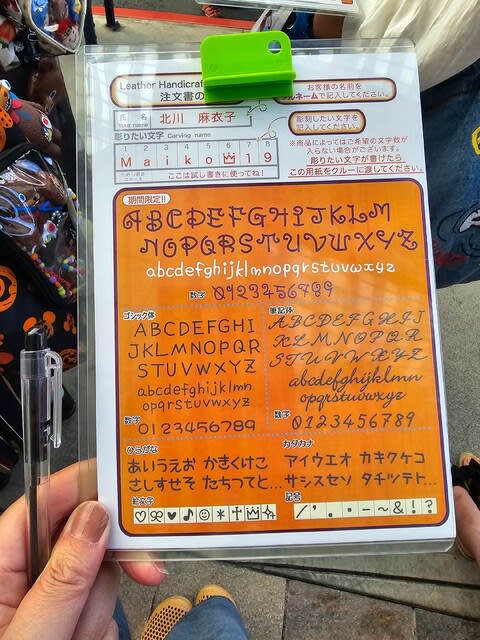 Leather Handicraf
注文書の
お客様の名前を
ルネームで記入してください。
氏 名 北川 麻衣子
Your name
彫刻したい文字を
記入してください。
彫りたい文字 Carving name
1 2 3 4 5 6 7 8
M a i k o 👑 1 9
ここは試し書きに使ってね!
※商品によってはご希望の文字数が
入らない場合がございます。
彫りたい文字が書けたら
この用紙をクルーに渡してください。
期間限定!!
ABCDEFGHIJKLM
NOPQRSTUVWXYZ
abcdefghijklmnopqrstuvwxyz
数字 0123456789
ゴシック体
ABCDEFGHI
JKLMNOPQR
STUVWXYZ
abcdefghijklmn
opqrstuvwxyz
数字 0123456789
筆記体
ABCDEFGHIJ
KLMNOPQR
STUVWXYZ
abcdefghijklmn
opqrstuvwxyz
数字 0123456789
ひらがな
あいうえお かきくけこ
さしすせそ たちつてと...
カタカナ
アイウエオ カキクケコ
サシスセソ タチツテト...
絵文字
♡ 🎀 ♥ ♪ ☺ * ✝ 👑 ✧
記号
/ ' . ・ − ~ & ! ?